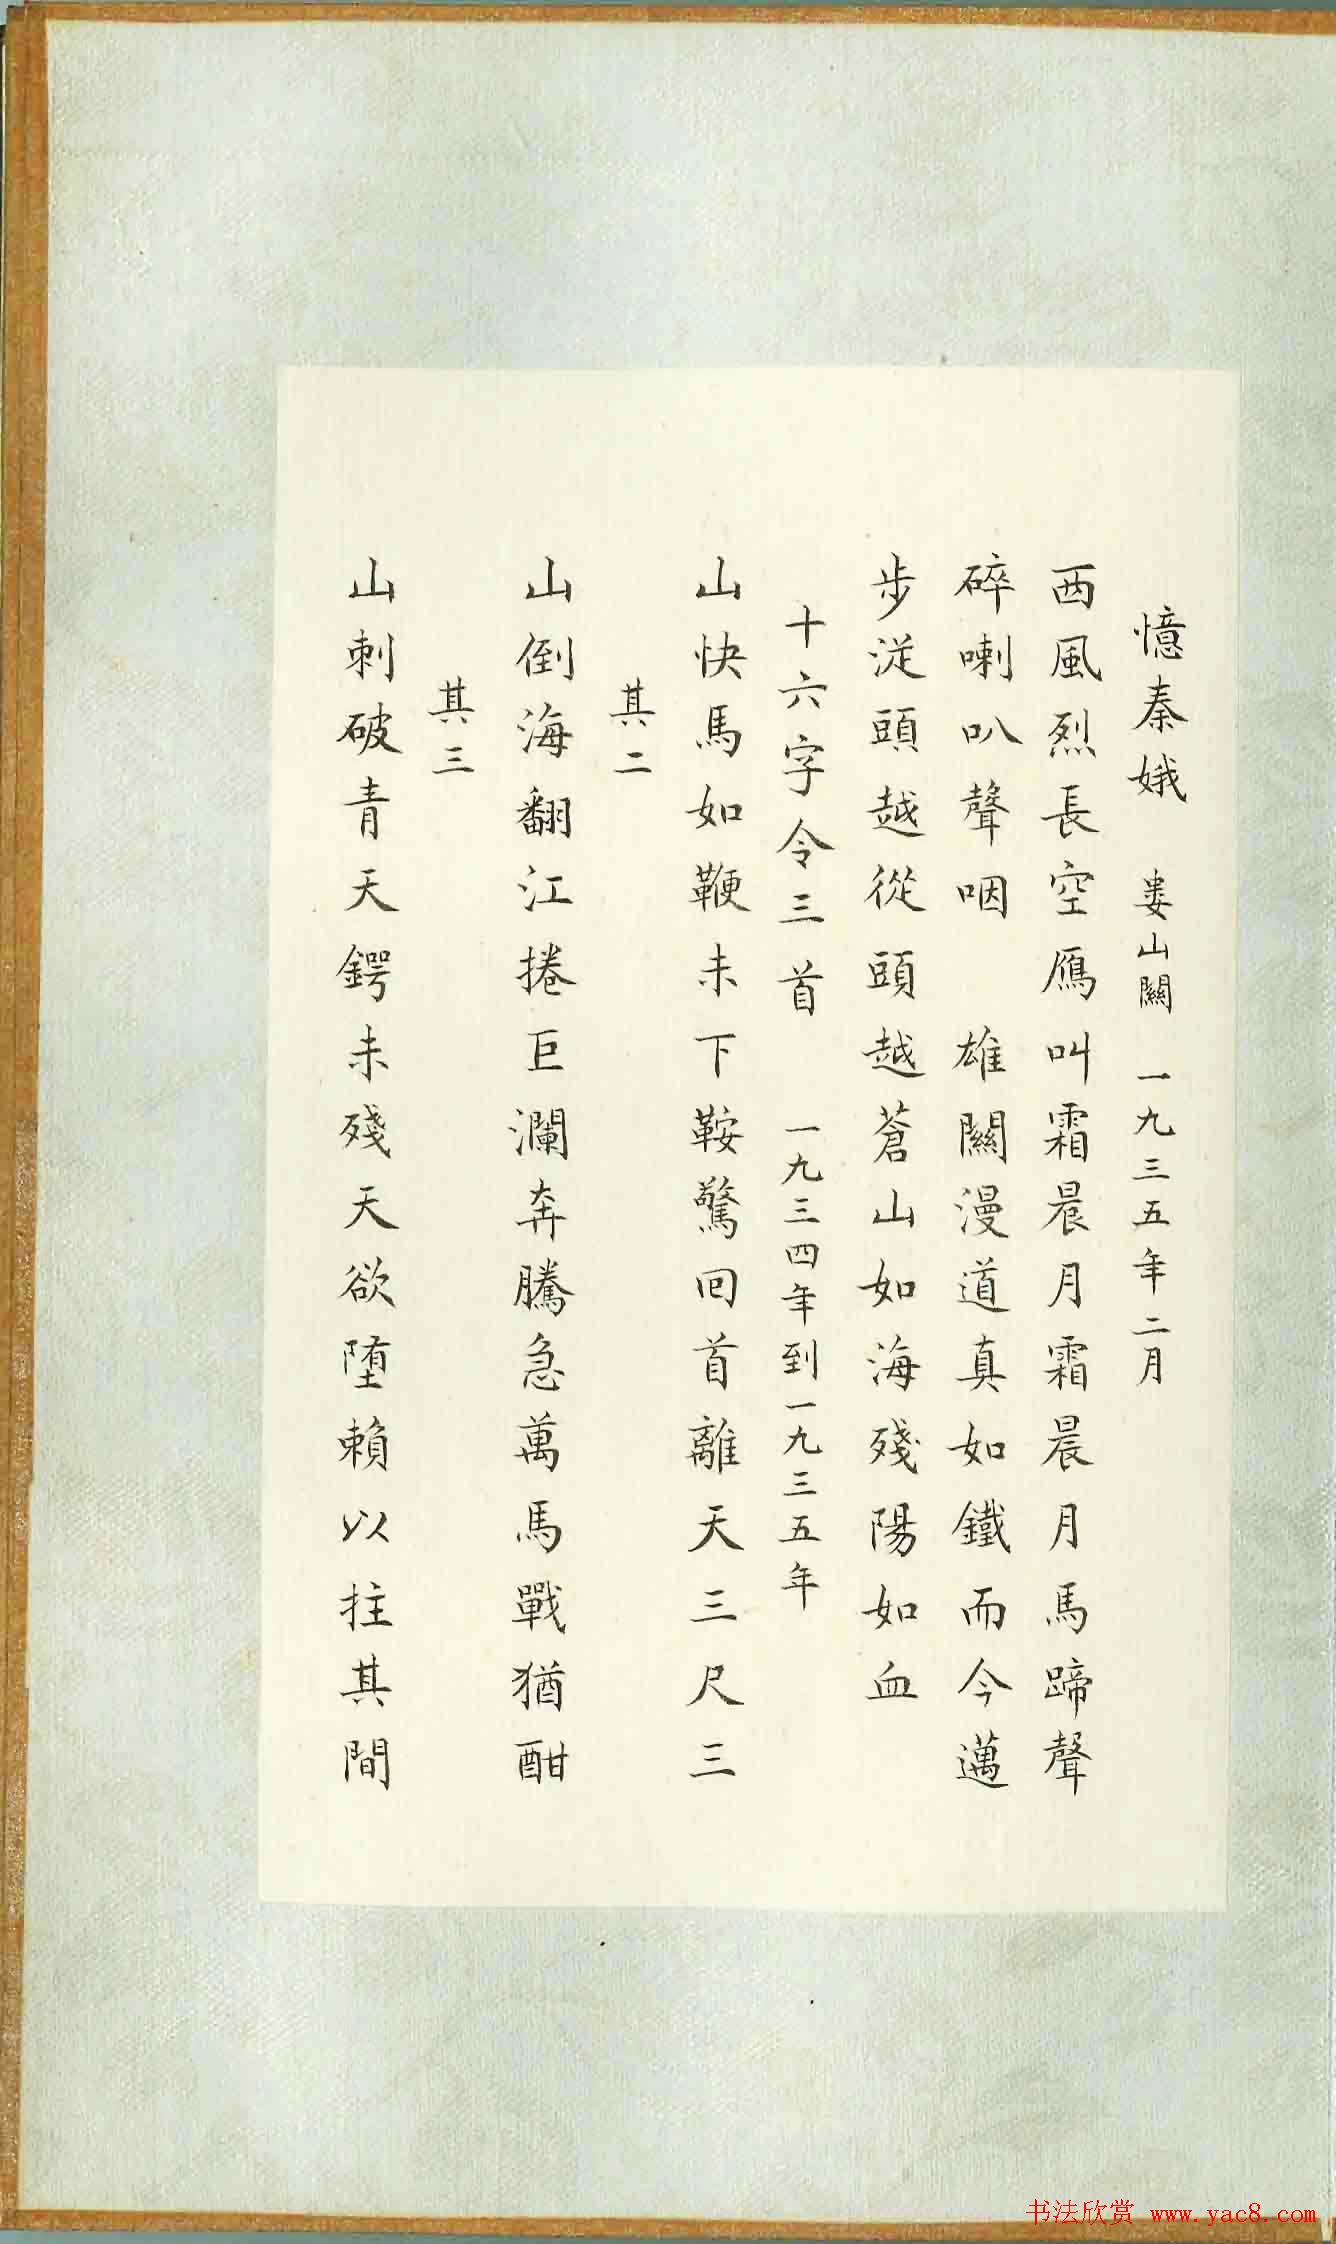 憶秦娥 婁山關 一九三五年二月
西風烈長空鴈叫霜晨月霜晨月馬蹄聲
碎喇叭聲咽 雄關漫道真如鐵而今邁
步從頭越從頭越蒼山如海殘陽如血
十六字令三首 一九三四年到一九三五年
山快馬加鞭未下鞍驚回首離天三尺三
其二
山倒海翻江捲巨瀾奔騰急萬馬戰猶酣
其三
山刺破青天鍔未殘天欲墮賴以拄其間
书法欣赏 www.yac8.com